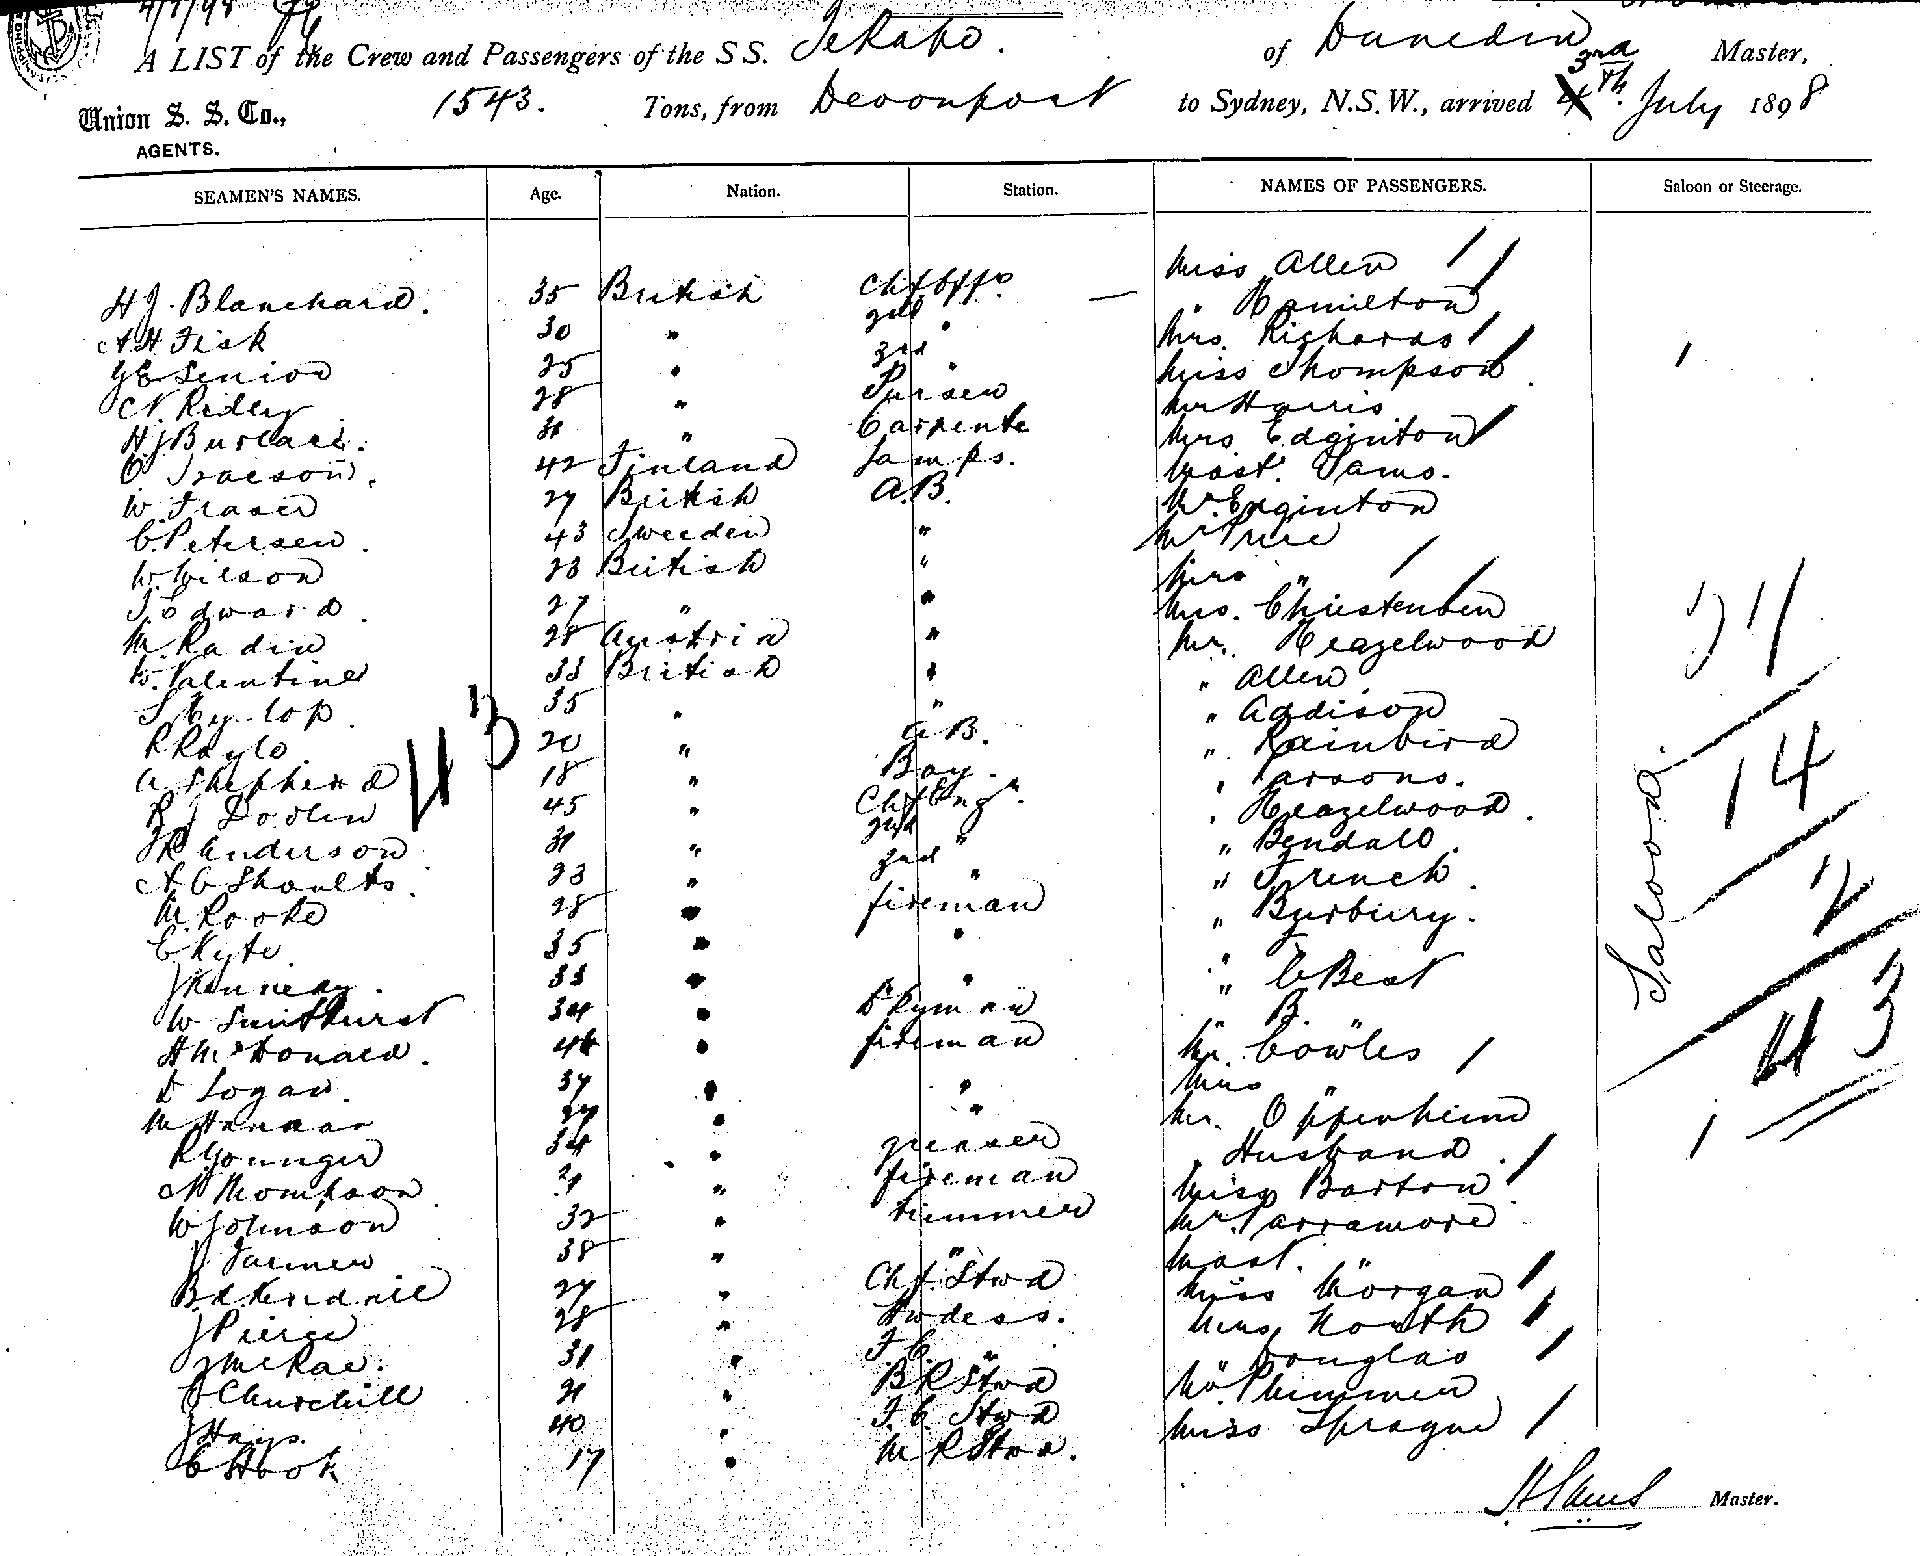 4/7/98
A LIST of the Crew and Passengers of the S S. Tekapo. of Dunedin Master,
Union S. S. Co., 1543. Tons, from Devonport to Sydney, N.S.W., arrived 3rd July 1898
AGENTS.
SEAMEN'S NAMES. Age. Nation. Station. NAMES OF PASSENGERS. Saloon or Steerage.
Miss Allen
H J. Blanchard. 35 British Chf Offr
" Hamilton
A H Fisk 30 " 2nd "
Mrs. Richards
G E Senior 25 " 3rd "
Miss Thompson
N. Ridley 28 " Purser
Mr Harris
H. J Burlace. 31 " Carpente
Mrs Edginton
Isacson. 42 Finland Lamps.
Mast. Sams.
W. Fraser 27 British A.B.
Mr Edginton
C. Petersen. 43 Sweeden "
Mr Price
W. Wilson 23 British "
Mrs "
J. Edward. 27 " "
Mrs. Christensen
M. Radin 28 Austria "
Mr. Heazelwood
W. Valentine 33 British "
" Allen
Hyslop. 35 " "
" Addison
R 20 " A B.
" Rainbird
A Shepherd 18 " Boy.
" Parsons.
R J Doolin 45 " Chf Engr.
" Heazelwood.
Anderson 31 " 2nd "
" Bendall.
A C Shoults. 23 " 3rd "
" French.
M. Rooke 28 " fireman
" Burbury.
C Kyte. 35 " "
J Kennedy. 33 " "
" C Best
W Smithurst 34 " Dkyman
" B. "
H McDonald. 46 " fireman
Mr. Cowles
D Logan. 37 " "
Mrs "
M 27 " "
Mr. Oppenheim
R Younger 34 " greaser
" Husband.
N Thompson 21 " fireman
Miss Barton
W Johnson 32 " trimmer
Mr. Parramore
J Farmer 38 " "
Mast. "
Kendall 27 " Chf. Stwd
Miss Morgan
J Pierce 28 " Stwdess.
Mrs North
J McRae. 31 " F C. "
" Douglas
Churchill 21 " B R Stwd
Mr Plummer
J Hays. 40 " F. C Stwd
Miss Sprague
C Hook 17 " M R Stwd.
43
Saloon.
14
2
43
Master.